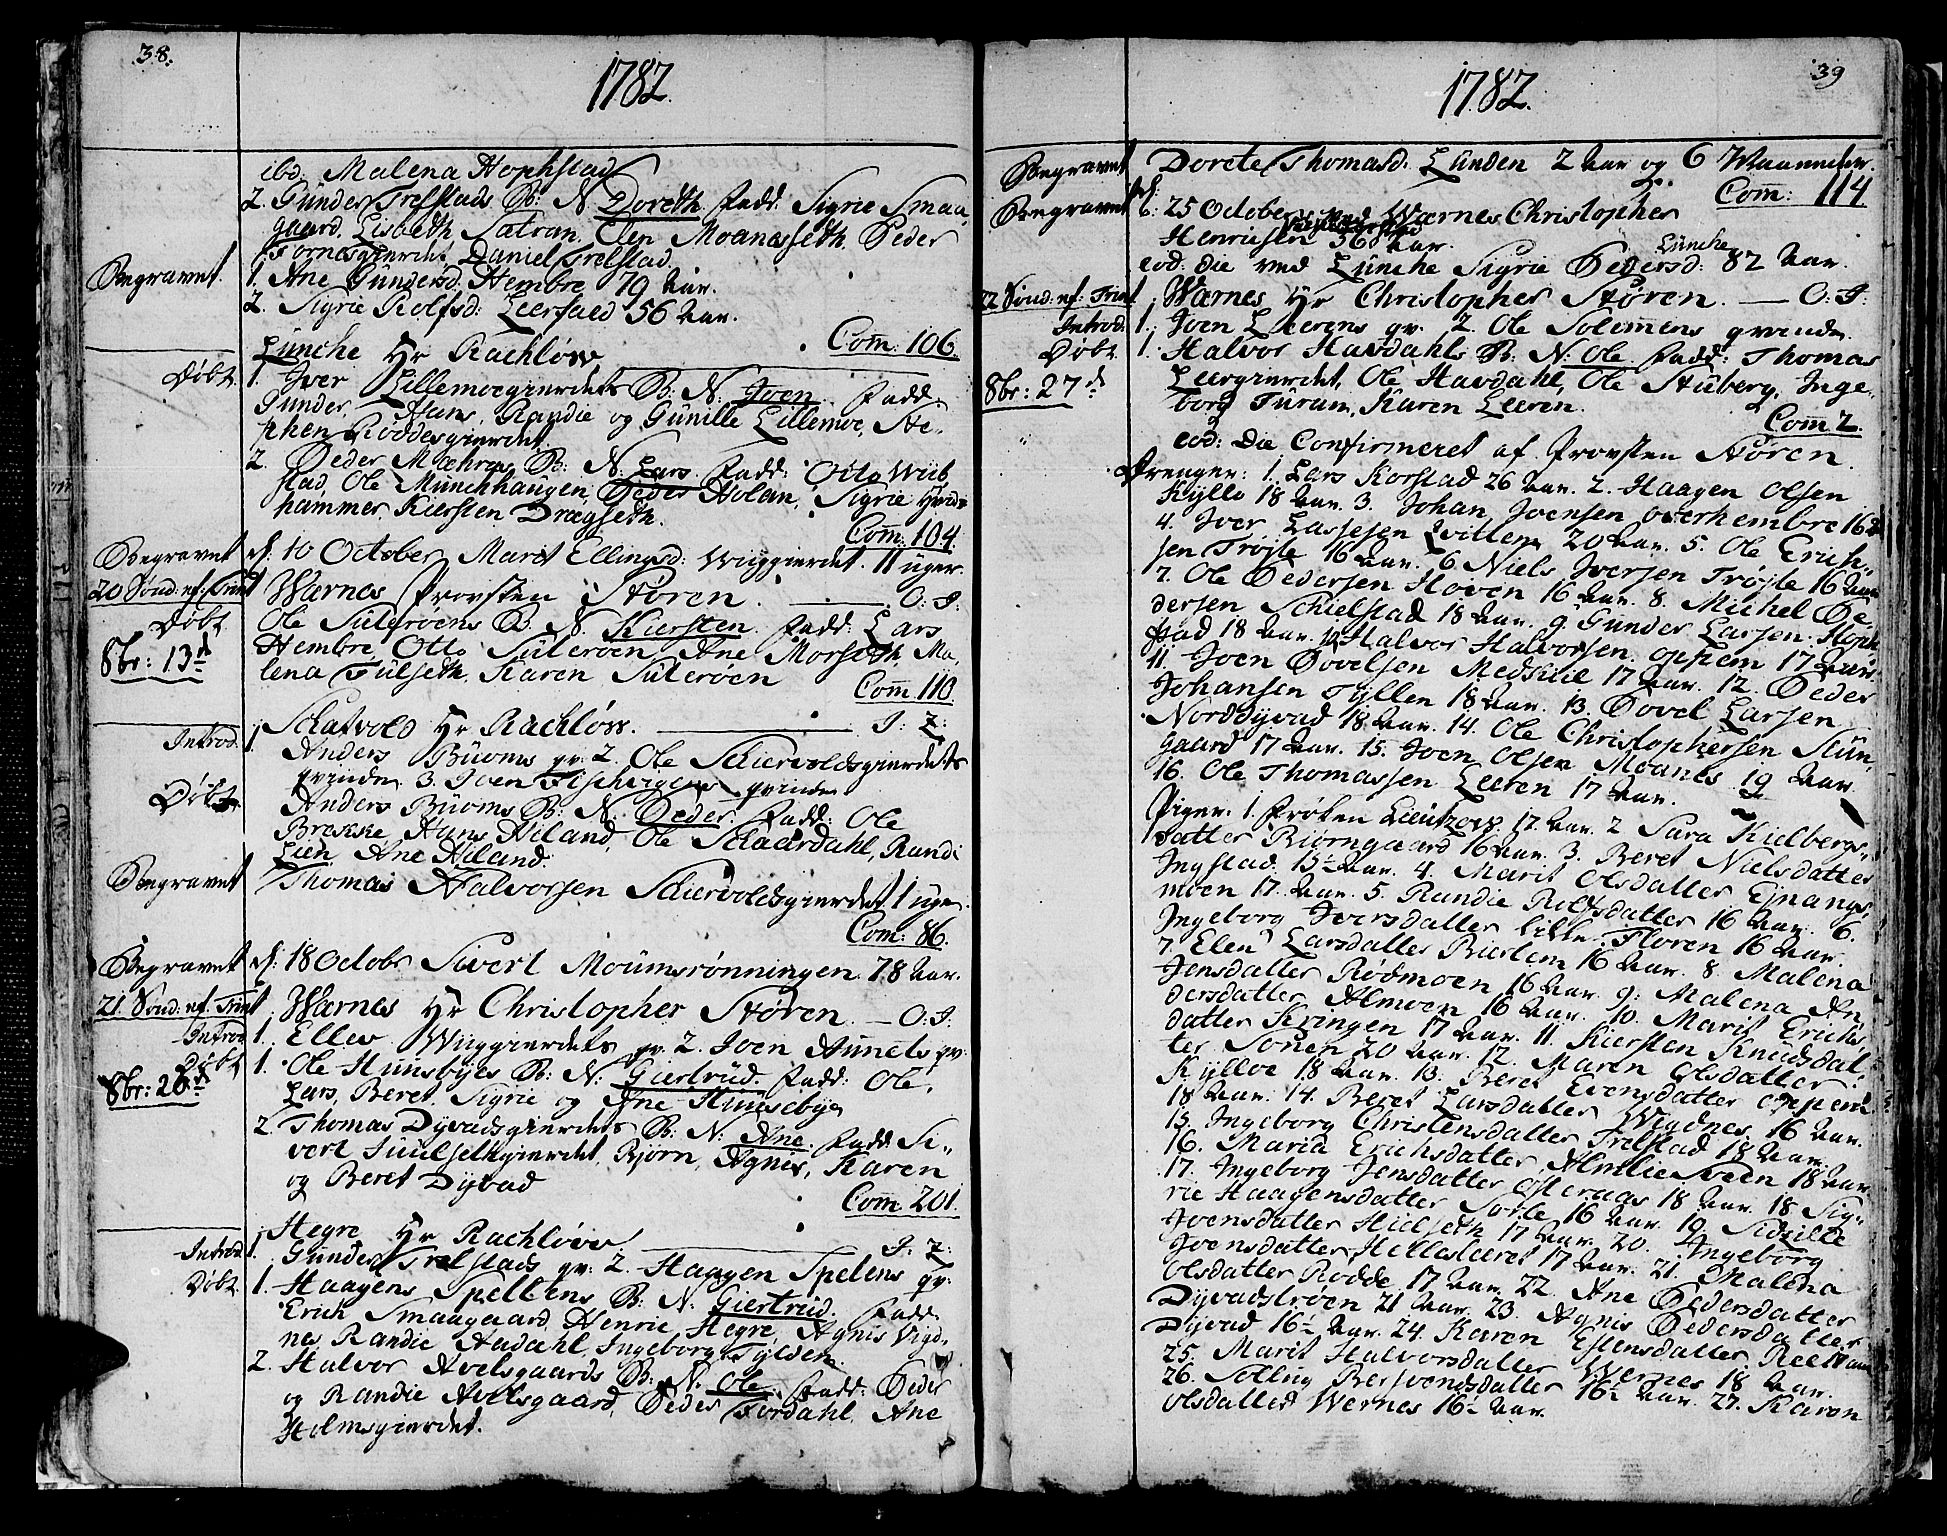 38.
1782.
ibd. Malena Hophstad
2. Gunder Trelstads B: N Doreth. Fadd: Sigrie Smaa,
gaard, Lisbeth Satran, Elen Moanesseth, Peder
Fornesgierdet, Daniel Trelstad.
Begravet. 1. Ane Gundersd. Hembre 79 Aar.
2. Sigrie Rolfsd: Leerfald 56 Aar.
Com: 106.
Lünche Hr Rachløw
Døbt 1. Iver Lillemoegierdets B: N. Joen. Fadd:
Gunder, Hans, Randie og Gunille Lillemoe, Ste-
phen Røddesgierdet.
2. Peder Mæhres B: N: Lars Fadd: Otto Wiib
stad, Ole Münchhaugen, Peder Holan, Sigrie Hvide
hammer, Kiersten Dragseth.
Com: 104.
Begravet d: 10 October Marit Ellingsd: Wiggierdet. 11 uger.
20 Sønd: ef: Trint Wærnes Provsten Støren. — O: I:
Døbt Ole Sulerøens B: N. Kiersten. Fadd: Lars
8br: 13d Hembre, Otto Sulerøen, Ane Morseth, Ma,
lena Fulseth, Karen Sulerøen
Com 110.
Schatvold Hr Rachløw. — I: Z:
Introd. 1. Anders Buoms qv. 2. Ole Schiervoldsgierdets
qvinde. 3. Joen Fischvigens qvinde
Døbt Anders Buoms B: N. Peder. Fadd: Ole
Brekke, Hans Hiland, Ole Schaardahl, Randi
Lien, Ane Hiland.
Begravet Thomas Halvorsen Schiervoldsgierdet 1 uge.
Com: 86.
Begravet d: 18 Octobr Sivert Moumsrønningen 78 Aar.
21. Sønd: ef: Trint Wærnes Hr Christopher Støren. — O: I:
Introd 1. Ellev Wiggierdets qv. 2. Joen Aunets qv:
Døbt 1. Ole Huusbyes B: N: Giertrud. Fadd: Ole,
8br: 20d Lars, Beret, Sigrie og Ane Huusebye,
2. Thomas Dyvadsgierdets B: N: Ane. Fadd: Si,
vert Juulsethgierdet, Bjørn, Agnis, Karen
og Beret Dyvad
Com 201.
Hegre Hr Rachløw — I: Z:
Introd 1. Gunder Trelstads qv: 2. Haagen Spelens qv:
Døbt. 1. Haagens Spellens B: N: Giertrud. Fadd:
Erich Smaagaard, Henric Hegre, Agnis Vigd,
nes, Randie Aadahl, Ingeborg Tylden.
2. Halvor Avelsgaards B: N: Ole. Fadd: Peder
og Randie Avelsgaard, Peder Fordahl, Ane
Holmsgierdet.
39
1782.
Begravet Dorete Thomasd: Lunden 2 Aar og 6 Maaneder.
Com: 114
Begravet d: 25 October ved Wærnes Christopher
Henricsen 56 Aar.
eod: die ved Lünche Sigrie Pedersd: Lünche 82 Aar.
22 Sønd: ef: Trint Wærnes Hr Christopher Støren. — O: I:
Introd. 1. Joen Leerens qv. 2. Ole Solemens qvinde
Døbt 1. Halvor Havdahls B: N: Ole. Fadd: Thomas
8br: 27d Leergierdet, Ole Havdahl, Ole Stuberg, Inge-
borg Turam, Karen Leeren.
Com 2.
eod: die Confirmeret af Provsten Støren.
Drenge: 1. Lars Korstad 26 Aar. 2. Haagen Olsen
Kyllo 18 Aar. 3. Johan Joensen overhembre 16 A
4. Iver Lassesen Qvitten 20 Aar. 5. Ole Erich-
sen Trøjte 16 Aar. 6 Niels Iversen Trøjte 16 Aar
7. Ole Pedersen Hoven 16 Aar. 8. Michel Pe,
dersen Schielstad 18 Aar. 9. Gunder Larsen Hoph
stad 18 Aar. 10 Halvor Halvorsen oppem 17 Aar.
11. Joen Povelsen Medshue 17 Aar. 12. Peder
Johansen Tyllen 18 Aar. 13. Povel Larsen
Norddyvad 18 Aar. 14. Ole Christophersen Stuu,
gaard 17 Aar. 15. Joen Olsen Moanes 19 Aar
16. Ole Thomassen Leeren 17 Aar.
Piger. 1. Frøken Lieutzow 17 Aar. 2 Sara Kielbergs-
datter Biørngaard 16 Aar. 3. Beret Nielsdatter
Ingstad. 15½ Aar. 4. Marit Olsdatter Ejnangs,
moen 17 Aar. 5. Randie Rolfsdatter 16 Aar. 6.
Ingeborg Iversdatter lille Floren 16 Aar.
7. Elen Larsdatter Bierlem 16 Aar. 8. Malena
Jensdatter Rødmoen 16 Aar. 9: Malena An,
dersdatter Almoen 16 Aar. 10. Marit Erichs,
datter Kringen 17 Aar. 11. Kiersten Knudsdat,
ter Sonen 20 Aar. 12. Maren Olsdatter
Kylloe 18 Aar. 13. Beret Evensdatter oppem
18 Aar. 14. Beret Larsdatter Wigdnes 16 Aar.
15. Ingeborg Christensdatter Trelstad 18 Aar.
16. Maria Erichsdatter Hollie Sveen 18 Aar
17. Ingeborg Jensdatter osteraas 18 Aar. 18 Sig,
rie Haagensdatter Sotte 16 Aar. 19. Sidsille
Joensdatter Hielseth 17 Aar. 20. Ingeborg
Joensdatter Helleleeret 17 Aar. 21. Malena
Olsdatter Rodde 17 Aar. 22. Ane Pedersdatter
Dyvadsrøen 21 Aar. 23. Agnis Pedersdatter
Dyvad 16½ Aar. 24. Karen Estensdatter Ree 17 aar
25. Marit Halvorsdatter Wernes 18 Aar.
26. Solling Bersvendsdatter 16½ Aar. 27. Karen
Olsdatter Wernes 16½ Aar.